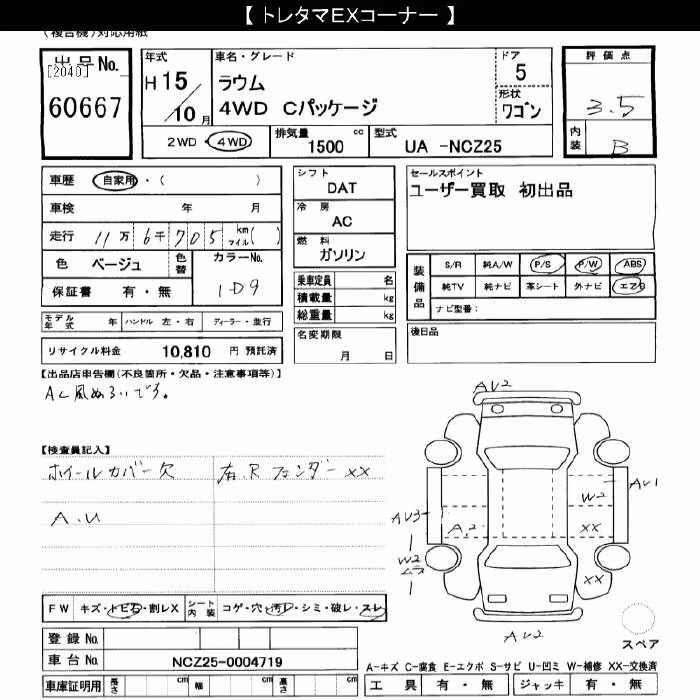 【 トレタマEXコーナー 】
(複合機)対応用紙
出品No.
[2040]
60667
年式
H 15 / 10 月
車名・グレード
ラウム
4WD Cパッケージ
ドア
5
形状
ワゴン
評価点
3.5
内装
B
2WD・4WD
排気量 1500 cc
型式 UA -NCZ25
車歴 自家用・( )
車検 年 月
走行 11万 6千 705 km マイル( )
色 ベージュ
色替
カラーNo.
1D9
保証書 有・無
シフト
DAT
冷房
AC
燃料
ガソリン
乗車定員 名
積載量 kg
総重量 kg
名変期限
月 日
セールスポイント
ユーザー買取 初出品
装備品
S/R 純A/W P/S P/W ABS
純TV 純ナビ 革シート 外ナビ エアB
ナビ型番:
後日品
モデル年式 年
ハンドル 左・右
ディーラー・並行
リサイクル料金 10,810 円 預託済
【出品店申告欄(不良箇所・欠品・注意事項等)】
AC風ぬるいです。
【検査員記入】
ホイールカバー欠
右.R フェンダー XX
A.U
AU2
AU1
W2
AU3
A2
XX
W2
ムラ
XX
AU2
スペア
FW キズ・トビ石・割レX
シート内装 コゲ・穴・汚レ・シミ・破レ・スレ
登録No.
車台No. NCZ25-0004719
車庫証明用 長さ cm 幅 cm 高さ cm
A-キズ C-腐食 E-エクボ S-サビ U-凹ミ W-補修 XX-交換済
工具 有・無 ジャッキ 有・無